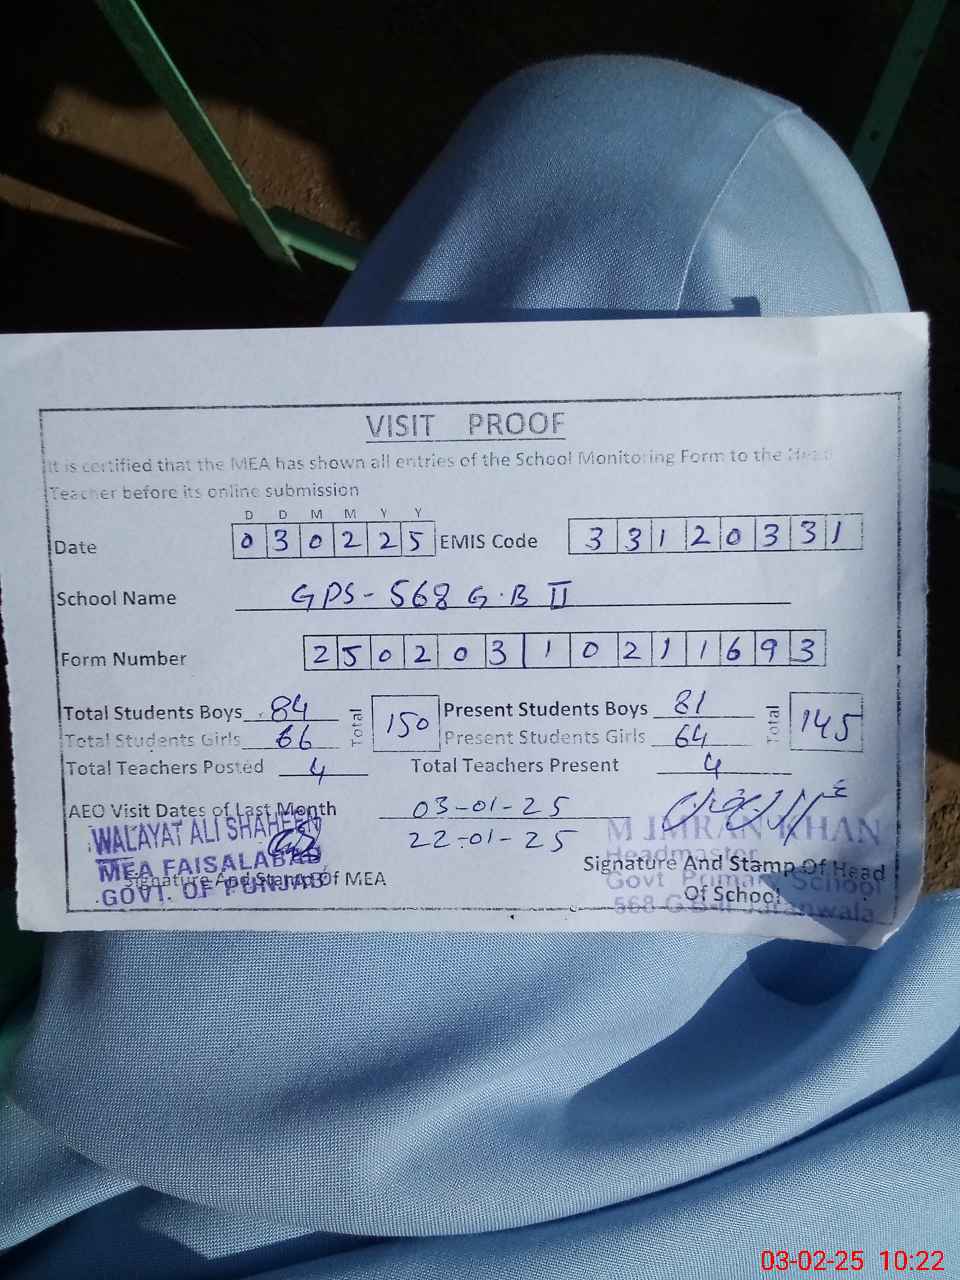 VISIT PROOF
It is certified that the MEA has shown all entries of the School Monitoring Form to the Head
Teacher before its online submission
D D M M Y Y
Date 0 3 0 2 2 5 EMIS Code 3 3 1 2 0 3 3 1
School Name GPS - 568 G.B II
Form Number 2 5 0 2 0 3 1 0 2 1 1 6 9 3
Total Students Boys 84 Total 150 Present Students Boys 81 Total 145
Total Students Girls 66 Present Students Girls 64
Total Teachers Posted 4 Total Teachers Present 4
AEO Visit Dates of Last Month 03-01-25
22-01-25
WALAYAT ALI SHAHEEN
MEA FAISALABAD
GOVT. OF PUNJAB
Signature And Stamp Of MEA
M IMRAN KHAN
Headmaster
Govt Primary School
568 G.B-II Jaranwala
Signature And Stamp Of Head
Of School
03-02-25 10:22